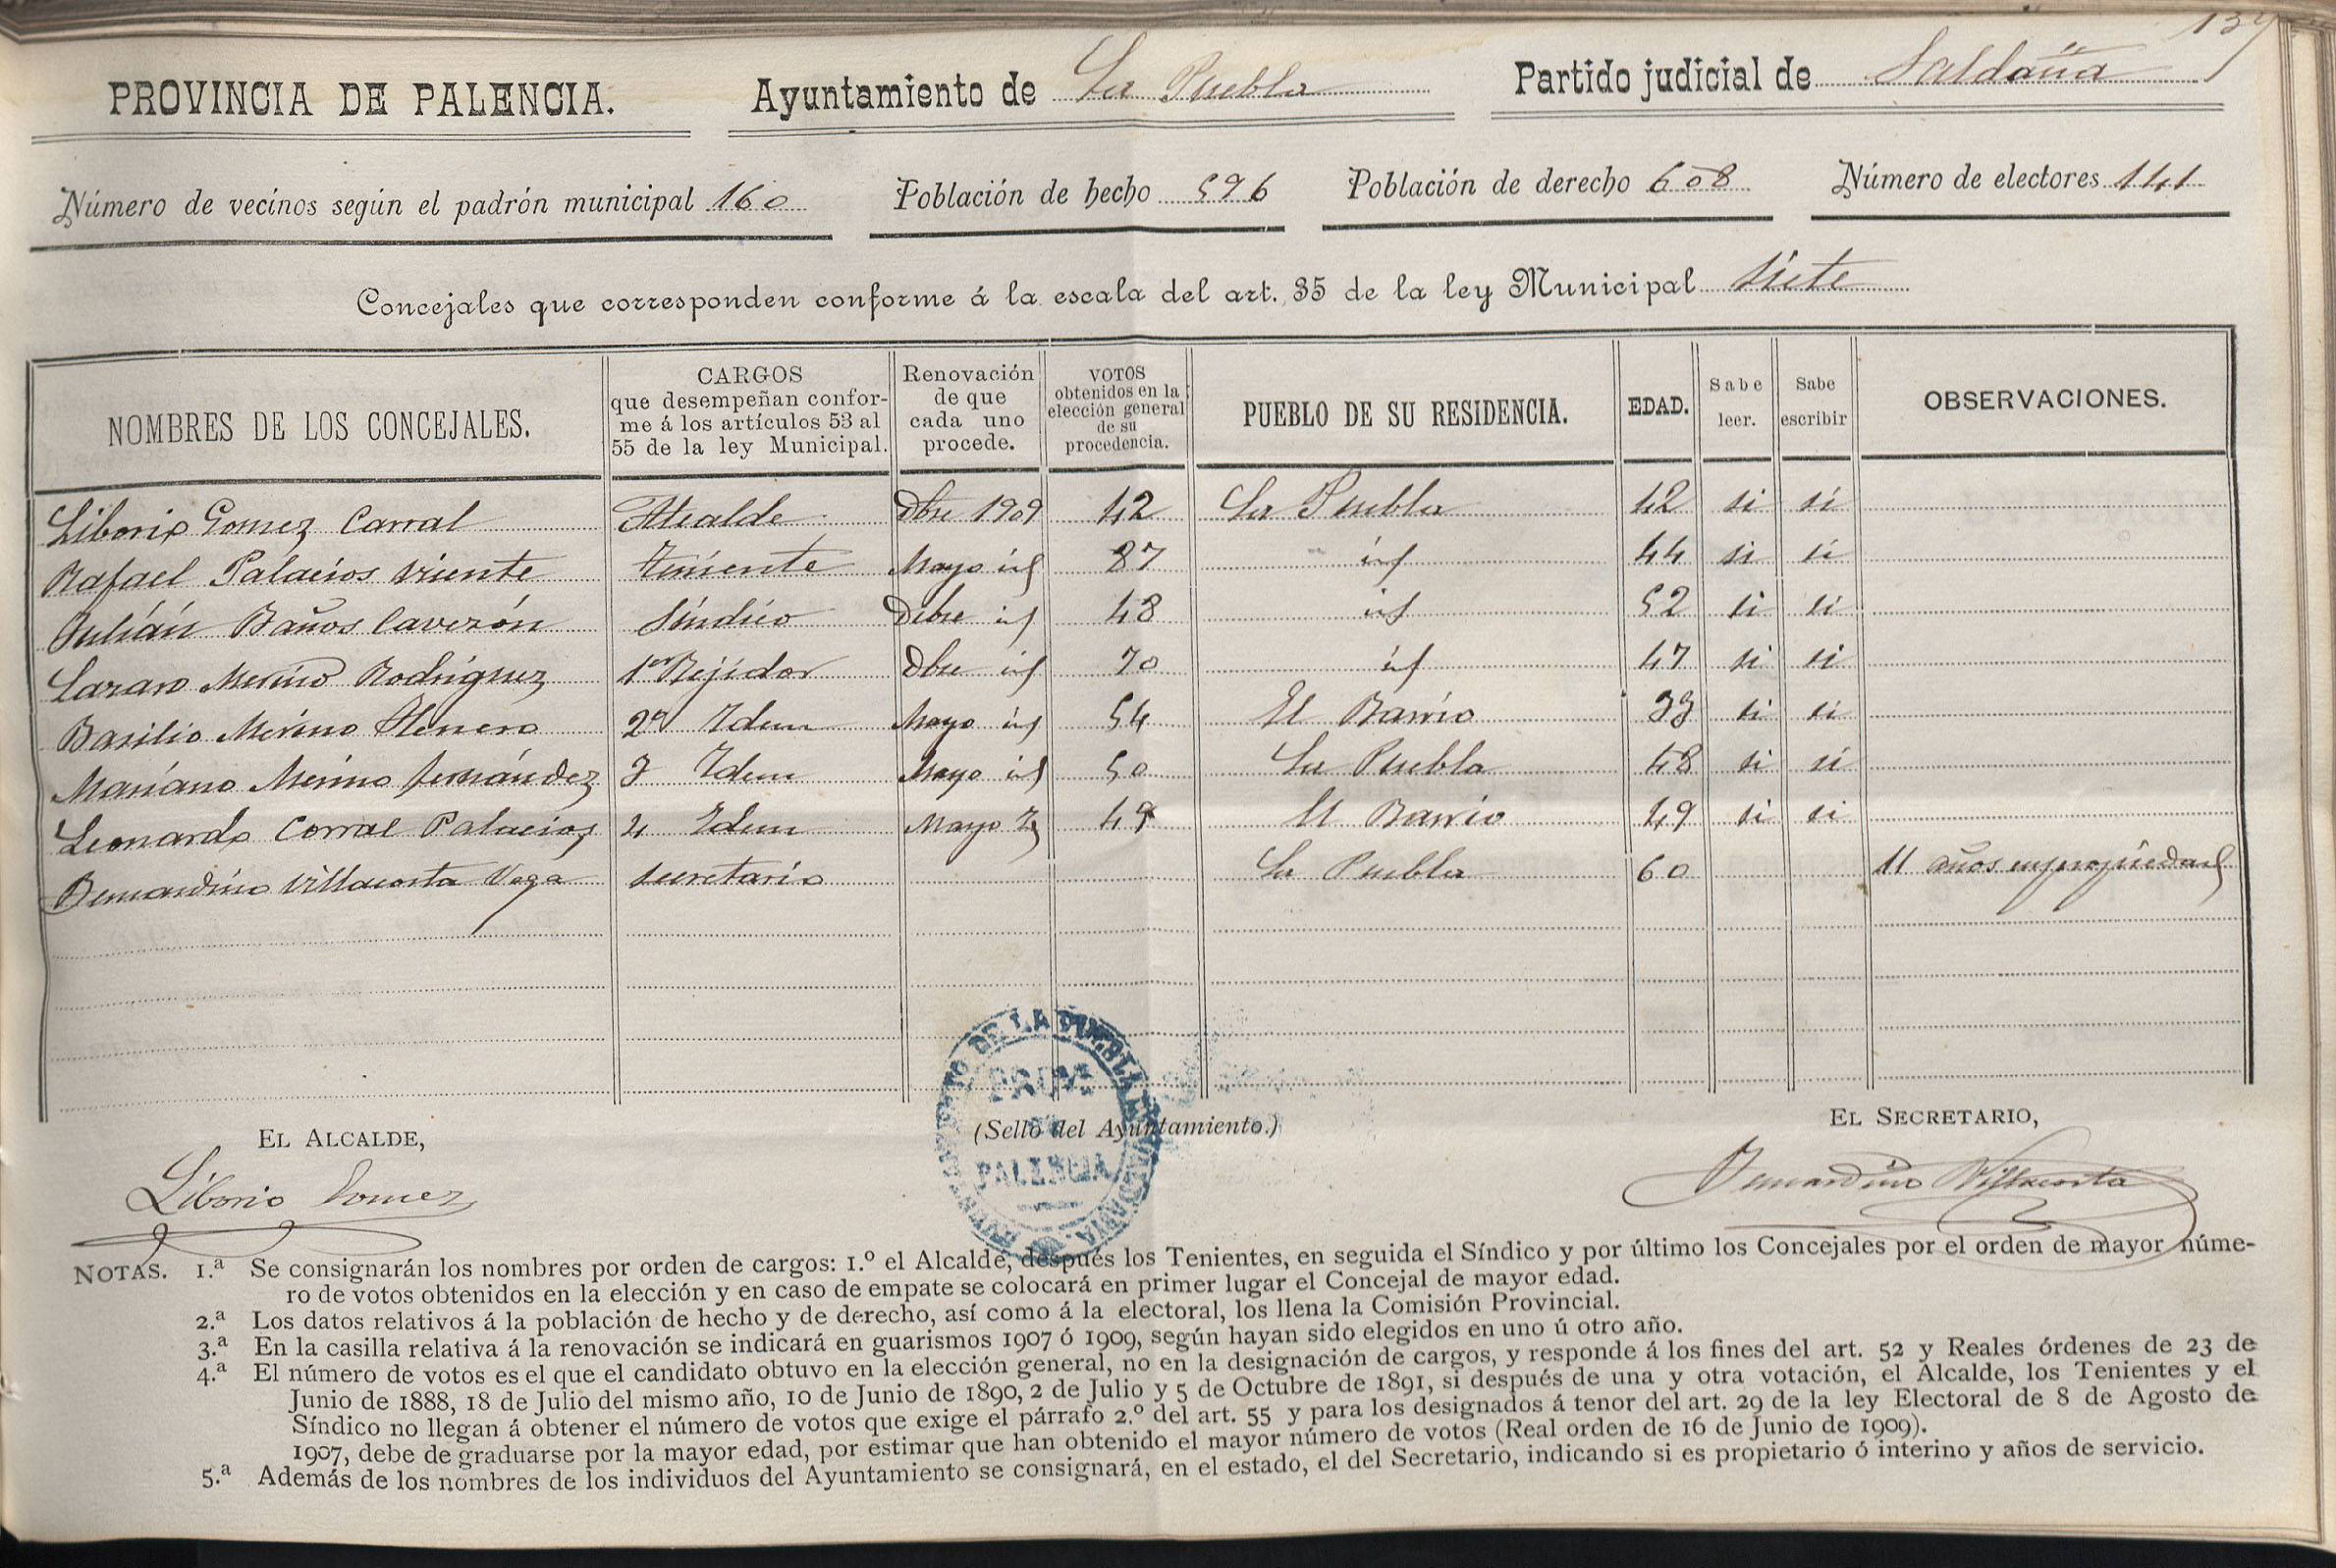 139
PROVINCIA DE PALENCIA. Ayuntamiento de La Puebla Partido judicial de Saldaña
Número de vecinos según el padrón municipal 160 Población de hecho 596 Población de derecho 608 Número de electores 141
Concejales que corresponden conforme á la escala del art. 35 de la ley Municipal siete
NOMBRES DE LOS CONCEJALES. CARGOS que desempeñan confor- me á los artículos 53 al 55 de la ley Municipal. Renovación de que cada uno procede. VOTOS obtenidos en la elección general de su procedencia. PUEBLO DE SU RESIDENCIA. EDAD. Sabe leer. Sabe escribir OBSERVACIONES.
Liborio Gomez Corral Alcalde Dbre 1909 42 La Puebla 42 si si
Rafael Palacios Vicente teniente Mayo id 87 id 44 si si
Julián Baños Caverón síndico Dibre id 48 id 52 si si
Lazaro Merino Rodriguez 1er Rejidor Dbre id 70 id 47 si si
Basilio Merino Herrero 2º Idem Mayo id 54 El Barrio 33 si si
Mariano Merino fernández 3 Idem Mayo id 50 La Puebla 48 si si
Leonardo Corral Palacios 4 Idem Mayo 49 El Barrio 49 si si
Bernardino Villacorta Vega secretario La Puebla 60 11 años en propiedad
EL ALCALDE,
Liborio Gomez
(Sello del Ayuntamiento.)
AYUNTAMIENTO DE LA PUEBLA DE VALDAVIA
PROVª DE PALENCIA
EL SECRETARIO,
Bernardino Villacorta
NOTAS. 1.ª Se consignarán los nombres por orden de cargos: 1.º el Alcalde, después los Tenientes, en seguida el Síndico y por último los Concejales por el orden de mayor núme-
ro de votos obtenidos en la elección y en caso de empate se colocará en primer lugar el Concejal de mayor edad.
2.ª Los datos relativos á la población de hecho y de derecho, así como á la electoral, los llena la Comisión Provincial.
3.ª En la casilla relativa á la renovación se indicará en guarismos 1907 ó 1909, según hayan sido elegidos en uno ú otro año.
4.ª El número de votos es el que el candidato obtuvo en la elección general, no en la designación de cargos, y responde á los fines del art. 52 y Reales órdenes de 23 de
Junio de 1888, 18 de Julio del mismo año, 10 de Junio de 1890, 2 de Julio y 5 de Octubre de 1891, si después de una y otra votación, el Alcalde, los Tenientes y el
Síndico no llegan á obtener el número de votos que exige el párrafo 2.º del art. 55 y para los designados á tenor del art. 29 de la ley Electoral de 8 de Agosto de
1907, debe de graduarse por la mayor edad, por estimar que han obtenido el mayor número de votos (Real orden de 16 de Junio de 1909).
5.ª Además de los nombres de los individuos del Ayuntamiento se consignará, en el estado, el del Secretario, indicando si es propietario ó interino y años de servicio.